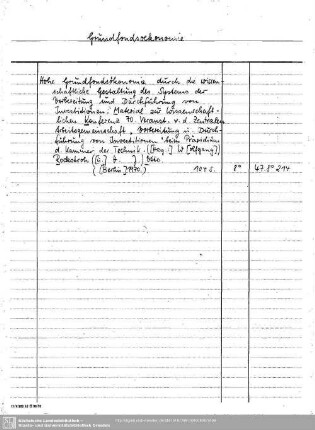 Grundfondsoekonomie
Hohe Grundfondsökonomie durch die wissen-
schaftliche Gestaltung des Systems der
Vorbereitung und Durchführung von
Investitionen. Material zur Wissenschaft-
lichen Konferenz 70. Veranst. v. d. Zentralen
Arbeitsgemeinschaft "Vorbereitung u. Durch-
führung von Investitionen" beim Präsidium
d. Kammer der Technik. ([Hrsg.:] W[olfgang]
Rockstroh
(Berlin) 1970. 104 S. 8° 47. 8° 214